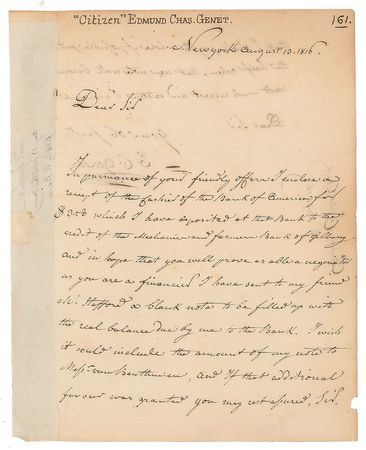 "Citizen" Edmund Chas. Genet.
161.
Newyork august 13. 1816.
Dear Sir
In pursuance of your friendly offers I enclose a
receipt of the Cashier of the Bank of America for
$ 350 which I have deposited at that Bank to the
credit of the Mechanics and farmers Bank of Albany
and in hope that you will prove as able a negociator
as you are a financier I have sent to my friend
Mr Stafford a blank note to be filled up with
the real balance due by me to the Bank. I wish
it could include the amount of my note to
Messrs van Benthuisen, and if that additional
favour was granted you may rest assured, Sir,